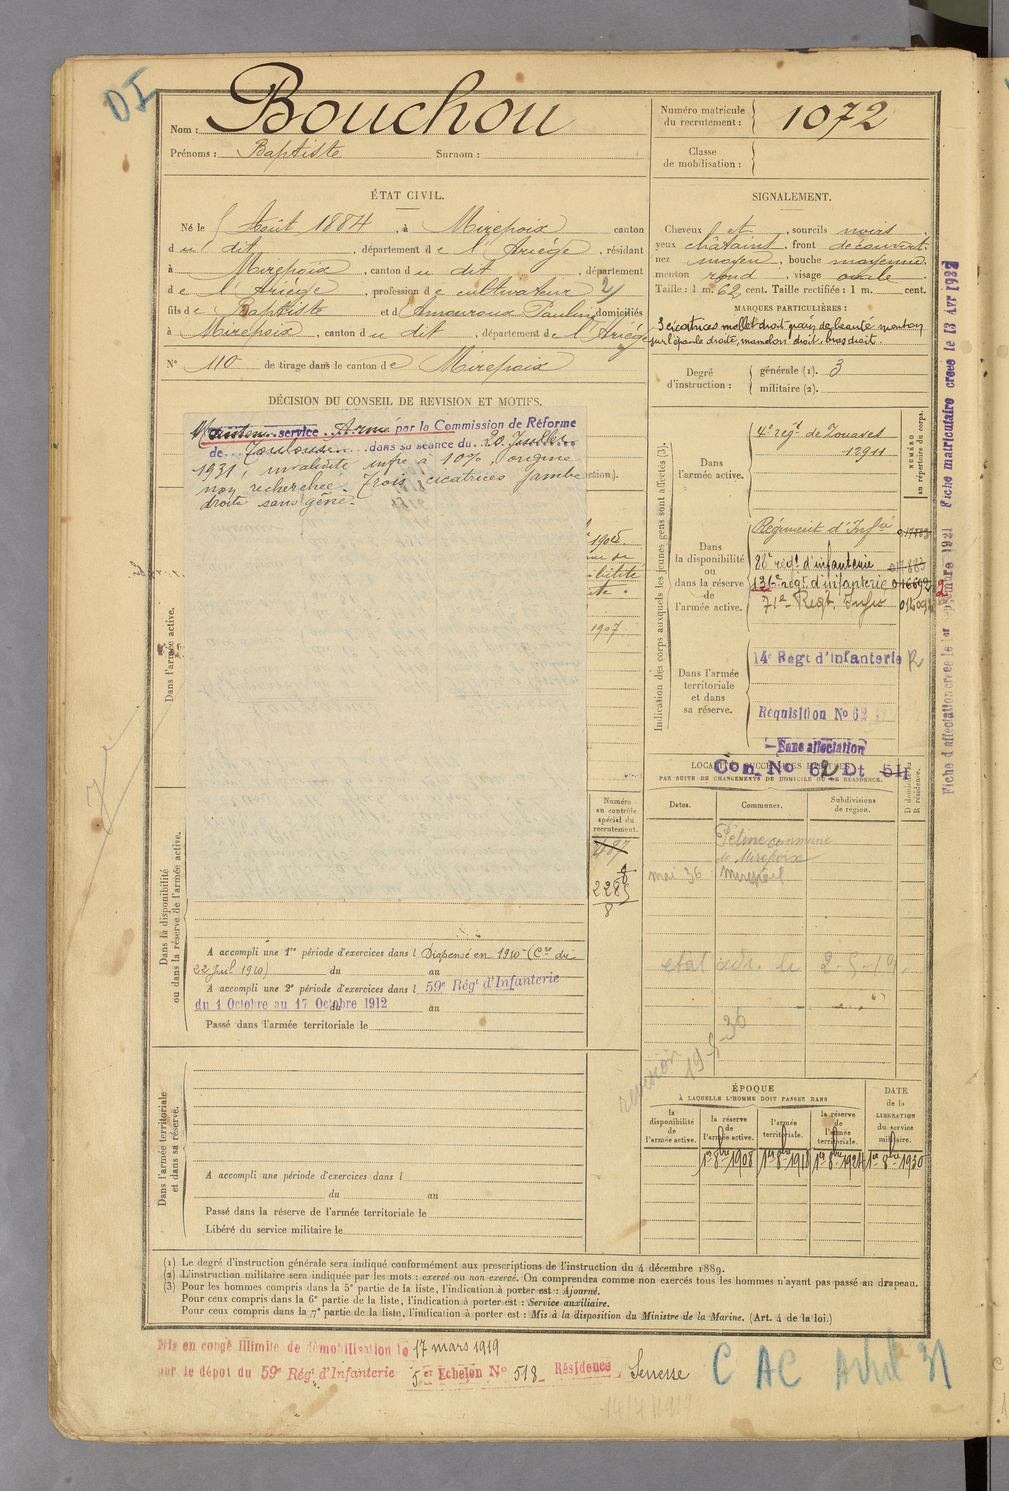 DI
Nom : Bouchou
Prénoms : Baptiste Surnom :
Numéro matricule du recrutement : 1072
Classe de mobilisation :
ÉTAT CIVIL.
Né le Août 1884, à Mirepoix canton
du dit, département de l'Ariège, résidant
à Mirepoix, canton du dit, département
de l'Ariège, profession de cultivateur
fils de Baptiste et d Amouroux Pauline domiciliés
à Mirepoix, canton du dit, département de l'Ariège
N° 110 de tirage dans le canton de Mirepoix
SIGNALEMENT.
Cheveux et, sourcils noirs,
yeux châtains, front découvert,
nez moyen, bouche moyenne,
menton rond, visage ovale
Taille : 1 m. 62 cent. Taille rectifiée : 1 m. cent.
MARQUES PARTICULIÈRES :
3 cicatrices mollet droit grain de beauté menton
sur l'épaule droite, mamelon droit, bras droit.
Degré d'instruction : générale (1). 3
militaire (2).
DÉCISION DU CONSEIL DE REVISION ET MOTIFS.
service Armé par la Commission de Réforme
de Toulouse dans sa séance du 20 Juillet
1931, invalidité infre à 10%, origine
non recherchée. Trois cicatrices jambe
droite sans gêne.
ction).
1905.
bilité
1907
Dans l'armée active.
Dans la disponibilité ou dans la réserve de l'armée active.
Indication des corps auxquels les jeunes gens sont affectés (3).
NUMÉRO au répertoire du corps.
Dans l'armée active.
4e régt de Zouaves
12911
Dans la disponibilité ou dans la réserve de l'armée active.
Régiment d'Infie
88e régt d'infanterie
136e régt d'infanterie
71e Regt Infie
Dans l'armée territoriale et dans sa réserve.
14e Régt d'Infanterie R
Requisition No 62
Sans affectation
Con. No 62 Dt 54
LOCALITÉS SUCCESSIVES HABITÉES
PAR SUITE DE CHANGEMENTS DE DOMICILE OU DE RÉSIDENCE.
Dates. Communes. Subdivisions de région. D domicile R résidence.
commune
de Mirepoix
mai 36
Numéro au contrôle spécial du recrutement.
2285
8
A accompli une 1re période d'exercices dans l Dispensé en 1910 (Cre du
22 Juil 1910) du au
A accompli une 2e période d'exercices dans l 59e Régt d'Infanterie
du 1 Octobre au 17 Octobre 1912 du au
Passé dans l'armée territoriale le
revision
19-5-30
Dans l'armée territoriale et dans sa réserve.
A accompli une période d'exercices dans l
du au
Passé dans la réserve de l'armée territoriale le
Libéré du service militaire le
ÉPOQUE
À LAQUELLE L'HOMME DOIT PASSER DANS
la disponibilité de l'armée active.
la réserve de l'armée active.
l'armée territoriale.
la réserve de l'armée territoriale.
DATE de la LIBÉRATION du service militaire.
1er 8bre 1908 1er 8bre 1918 1er 8bre 1924 1er 8bre 1930
(1) Le degré d'instruction générale sera indiqué conformément aux prescriptions de l'instruction du 4 décembre 1889.
(2) L'instruction militaire sera indiquée par les mots : exercé ou non exercé. On comprendra comme non exercés tous les hommes n'ayant pas passé au drapeau.
(3) Pour les hommes compris dans la 5e partie de la liste, l'indication à porter est : Ajourné.
Pour ceux compris dans la 6e partie de la liste, l'indication à porter est : Service auxiliaire.
Pour ceux compris dans la 7e partie de la liste, l'indication à porter est : Mis à la disposition du Ministre de la Marine. (Art. 4 de la loi.)
Mis en congé illimité de démobilisation le 17 mars 1919
par le dépôt du 59e Régt d'Infanterie 5er Echelon No 518 Résidence Senesse
C AC Avril 31
14/4/1919
Fiche matriculaire créée le 13 Avr 1932